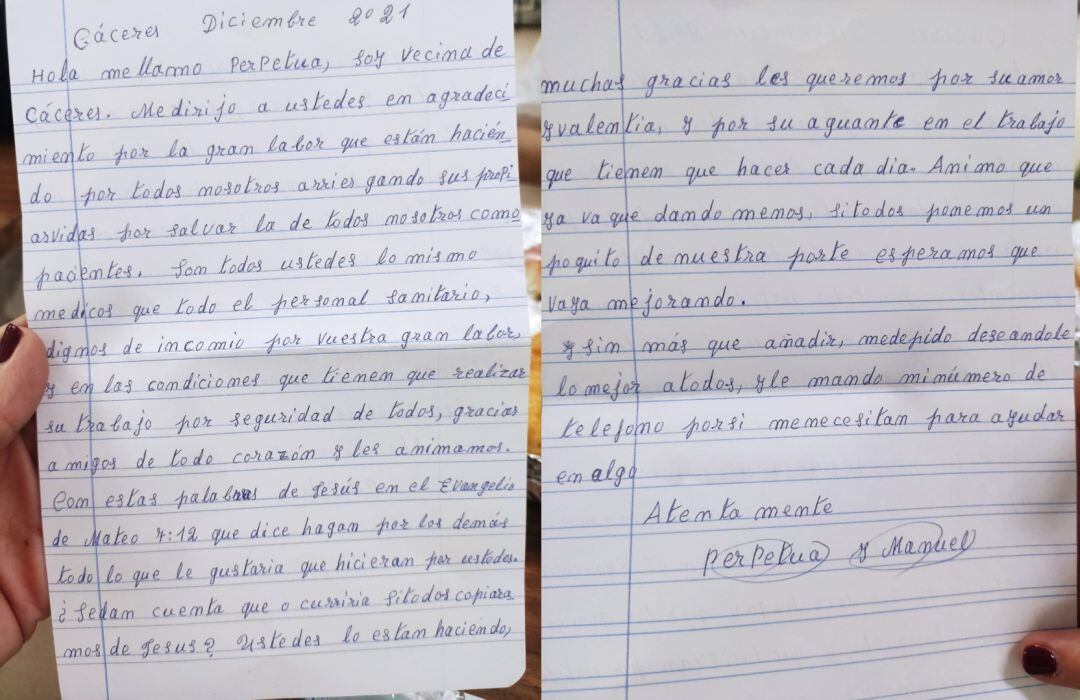 Cáceres Diciembre 2021
Hola me llamo Perpetua, soy vecina de
Cáceres. Me dirijo a ustedes en agradeci
miento por la gran labor que están hacién
do por todos nosotros arries gando sus propi
asvidas por salvar la de todos nosotros como
pacientes. Son todos ustedes lo mismo
medicos que todo el personal sanitario,
dignos de incomio por vuestra gran labor,
y en las condiciones que tienen que realizar
su trabajo por seguridad de todos, gracias
a migos de todo corazón y les animamos.
Con estas palabras de Jesús en el Evangelio
de Mateo 7:12 que dice hagan por los demás
todo lo que le gustaria que hicieran por ustedes.
¿Sedan cuenta que o curriria sitodos copiara
mos de Jesus? Ustedes lo estan haciendo,
muchas gracias les queremos por su amor
yvalentia, y por su aguante en el trabajo
que tienen que hacer cada dia. Animo que
ya va que dando menos, sitodos ponemos un
poquito de nuestra parte espera mos que
vaya mejorando.
y sin más que añadir, medepido deseandole
lo mejor atodos, yle mando minúmero de
telefono porsi menecesitan para ayudar
en algo
Atenta mente
Perpetua y Manuel